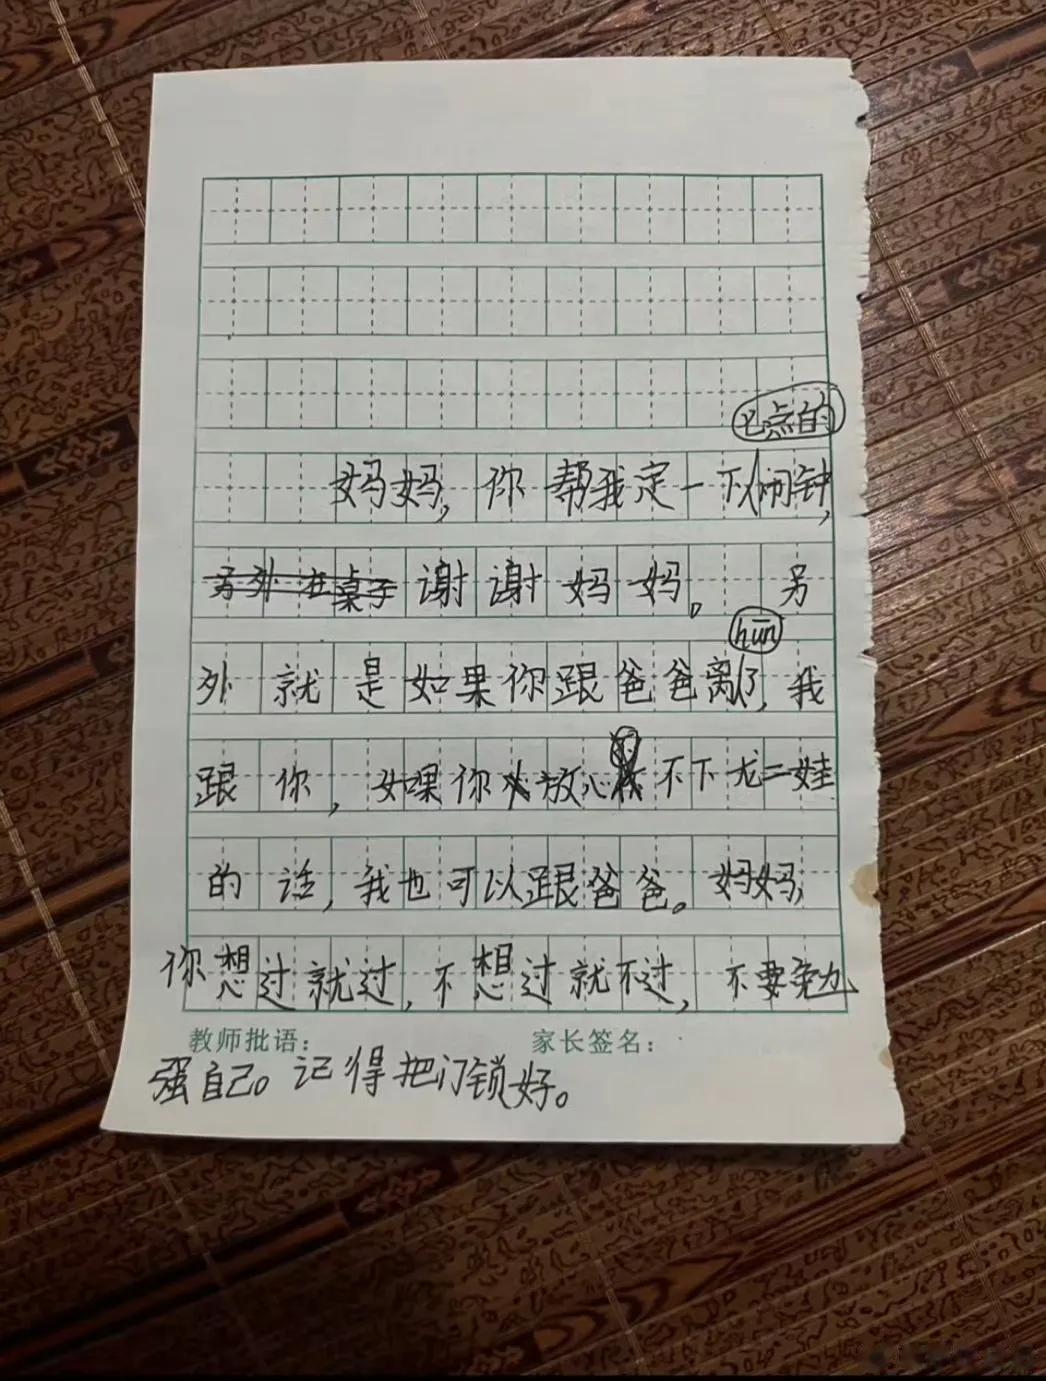 七点的
妈妈,你帮我定一下闹钟,
另外在桌子谢谢妈妈。另
hūn
外就是如果你跟爸爸离了,我
跟你,如果你放心不下龙二娃
的话,我也可以跟爸爸。妈妈,
你想过就过,不想过就不过,不要勉
教师批语: 家长签名:
强自己。记得把门锁好。